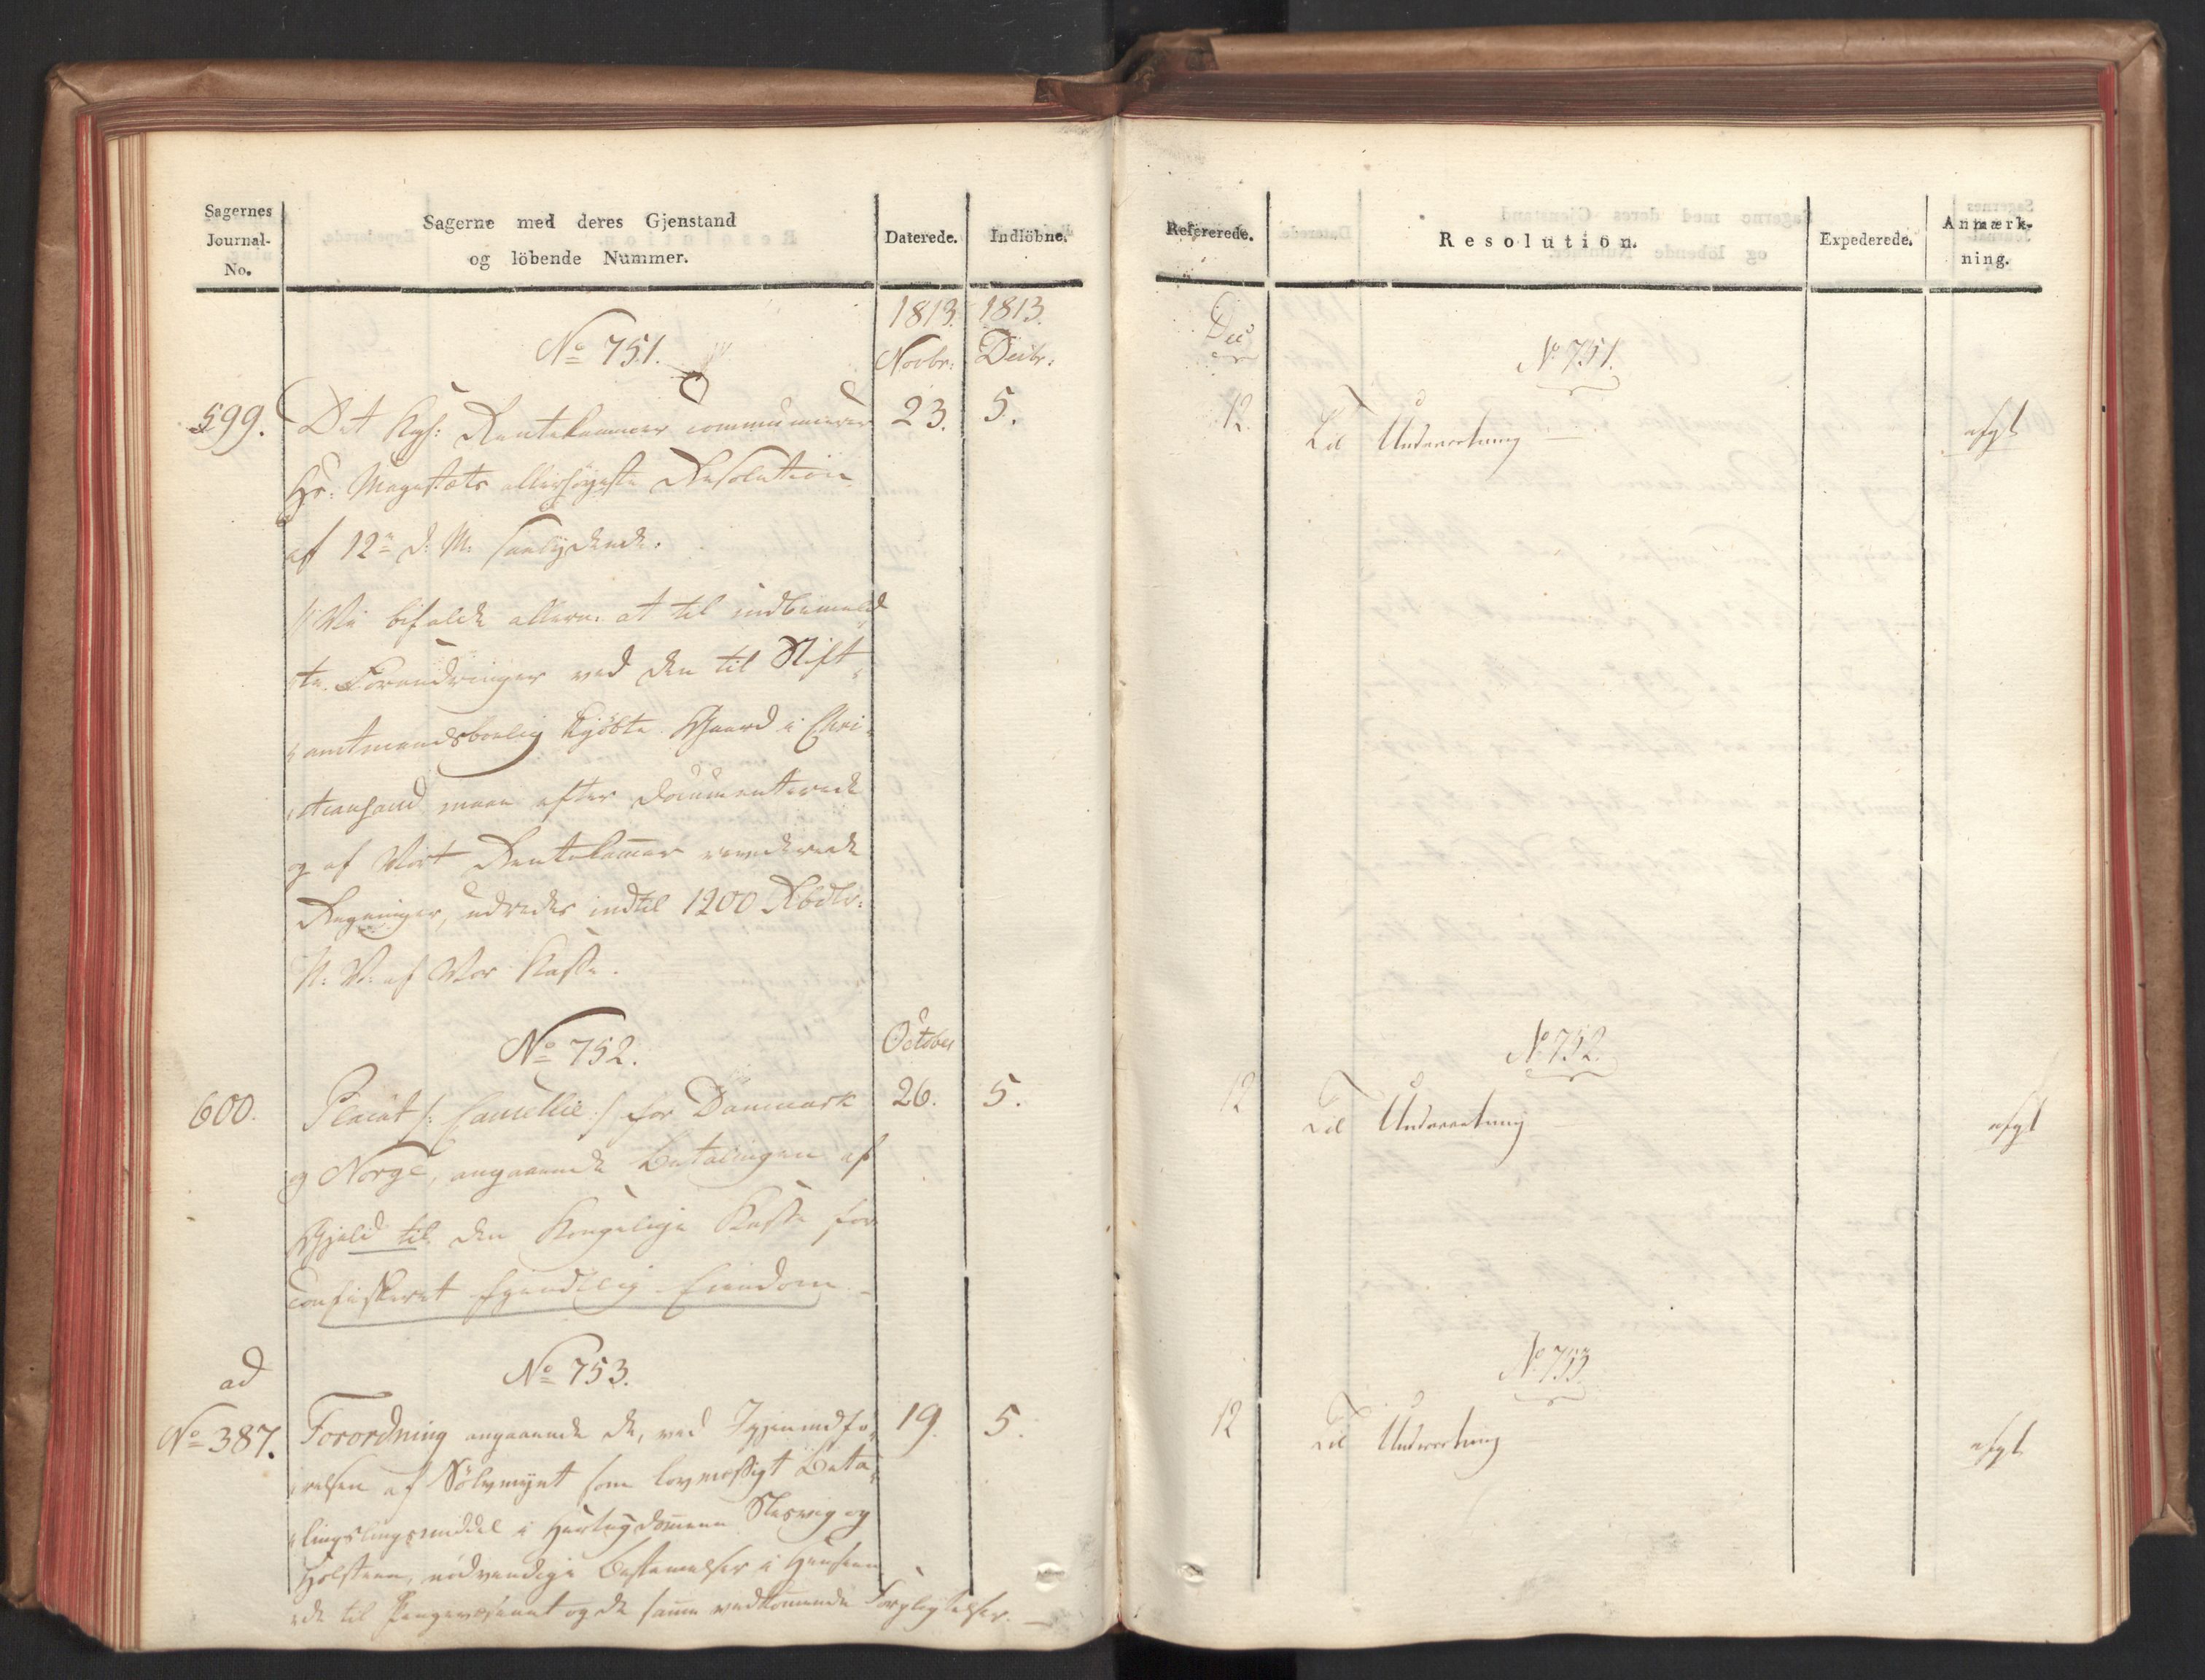 Sagernes
Journal-
No.
Sagerne med deres Gjenstand
og löbende Nummer.
Daterede.
Indlöbne.
1813. 1813.
Novbr: Decbr:
No 751.
599. Det Kgl: Rentekammer communicerer 23. 5.
Hs: Majestæts allerhøyeste Resolution
af 12te d: M: saalydende:
"Vi bifalde allern: at til indbemeld
te Forandringer ved den til Stift
amtmandsboelig kjøbte Gaard i Chri
stiansand maae efter documenterede
og af Vort Rentekammer reviderede
Regninger, udredes indtil 1200 Rbdlr:
N: V: af Vor Kasse.
No 752.
October
600. Placat /: Cancellie :/ for Danmark 26. 5.
og Norge, angaaende Betalingen af
Gjeld til den Kongelige Kasse for
confiskeret fjendtlig Eiendom
ad
No 387.
No 753.
Forordning angaaende de, ved Igjenindfø 19. 5.
relsen af Sølvmynt som lovmæssigt Beta
lingslingsmiddel i Hertugdømmene Slesvig og
Holsteen, nødvendige Bestemmelser i Henseen
de til Pengevæsenet og de samme vedkommende Forpligtelser.
Refererede.
Resolution.
Expederede.
Anmærk-
ning.
Dec
No 751.
12. Til Underretning afgl
No 752.
12 Til Underretning afgl
No 753
12 Til Underretning afgl